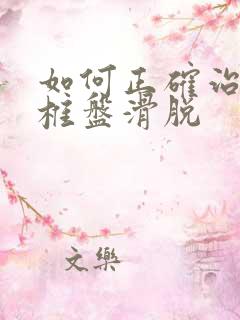 如何正確治
框盤滑脱
文樂